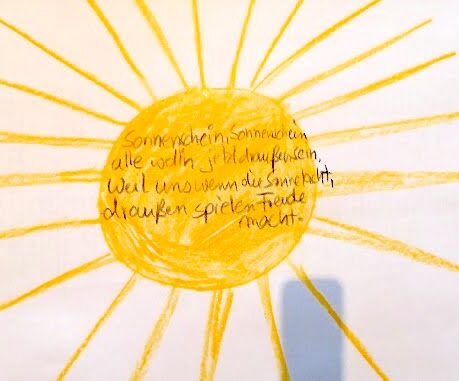 Sonnenschein, Sonnenschein
alle woll'n jetzt draußen sein,
Weil uns wenn die Sonne lacht,
draußen spielen Freude
macht.